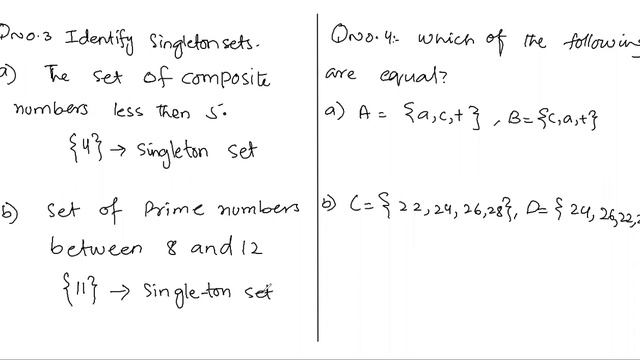 QNO.3 Identify Singleton sets.
a) The set of composite
numbers less then 5.
{4} → Singleton set
b) set of Prime numbers
between 8 and 12
{11} → Singleton set
QNO.4:- which of the following
are equal?
a) A = {a,c,t} , B={c,a,t}
b) C={ 22,24,26,28}, D={ 24,26,22,2